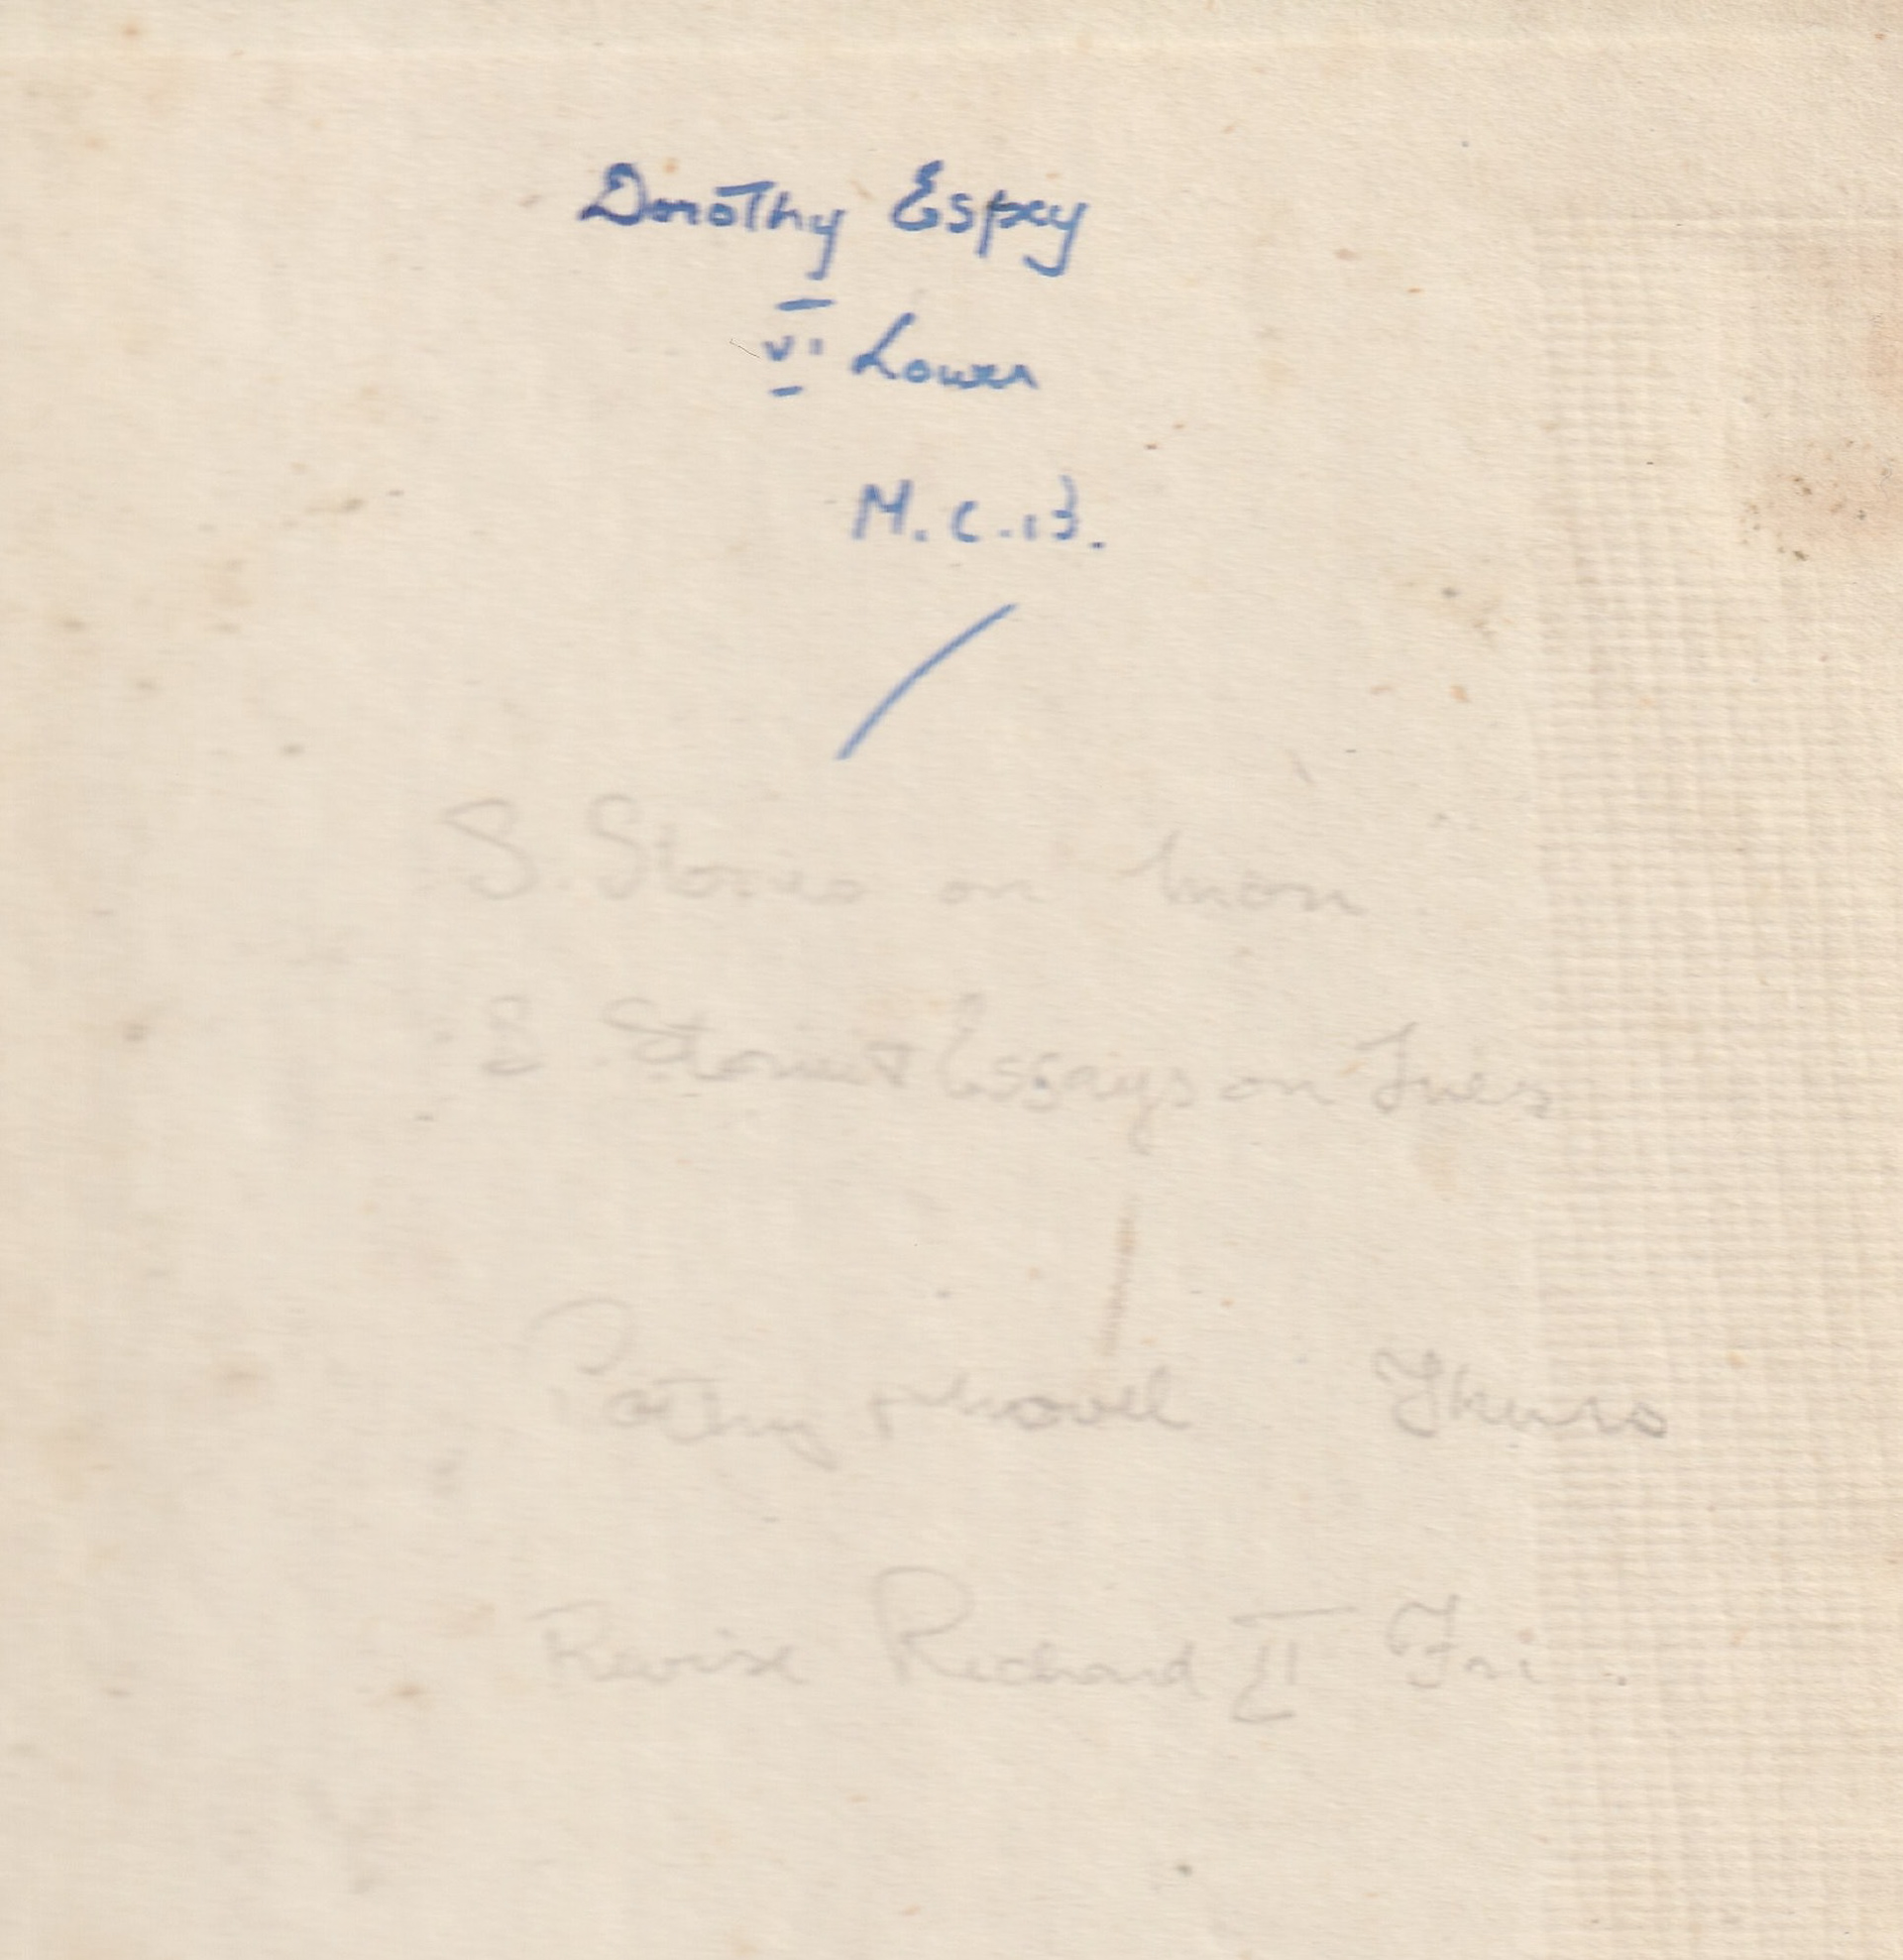 Dorothy Espey
VI Lower
M.C.B.
S. Stories on Mon.
S. Stories + Essays on Tues
Poetry + Novel Thurs
Revise Richard II Fri.